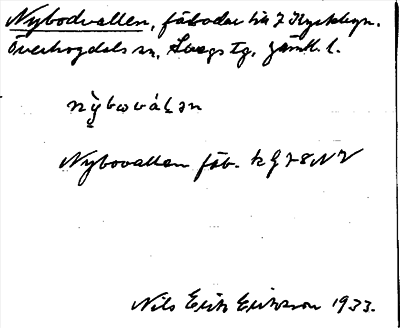 Nybodvallen, fäbodar till 7 Kyrkbyn.
Överhogdals sn, Svegs tg, Jämtl. l.
nỳ̬bωváḷən
Nybovallen fäb. k g 78 NV
Nils Erik Eriksson 1933.